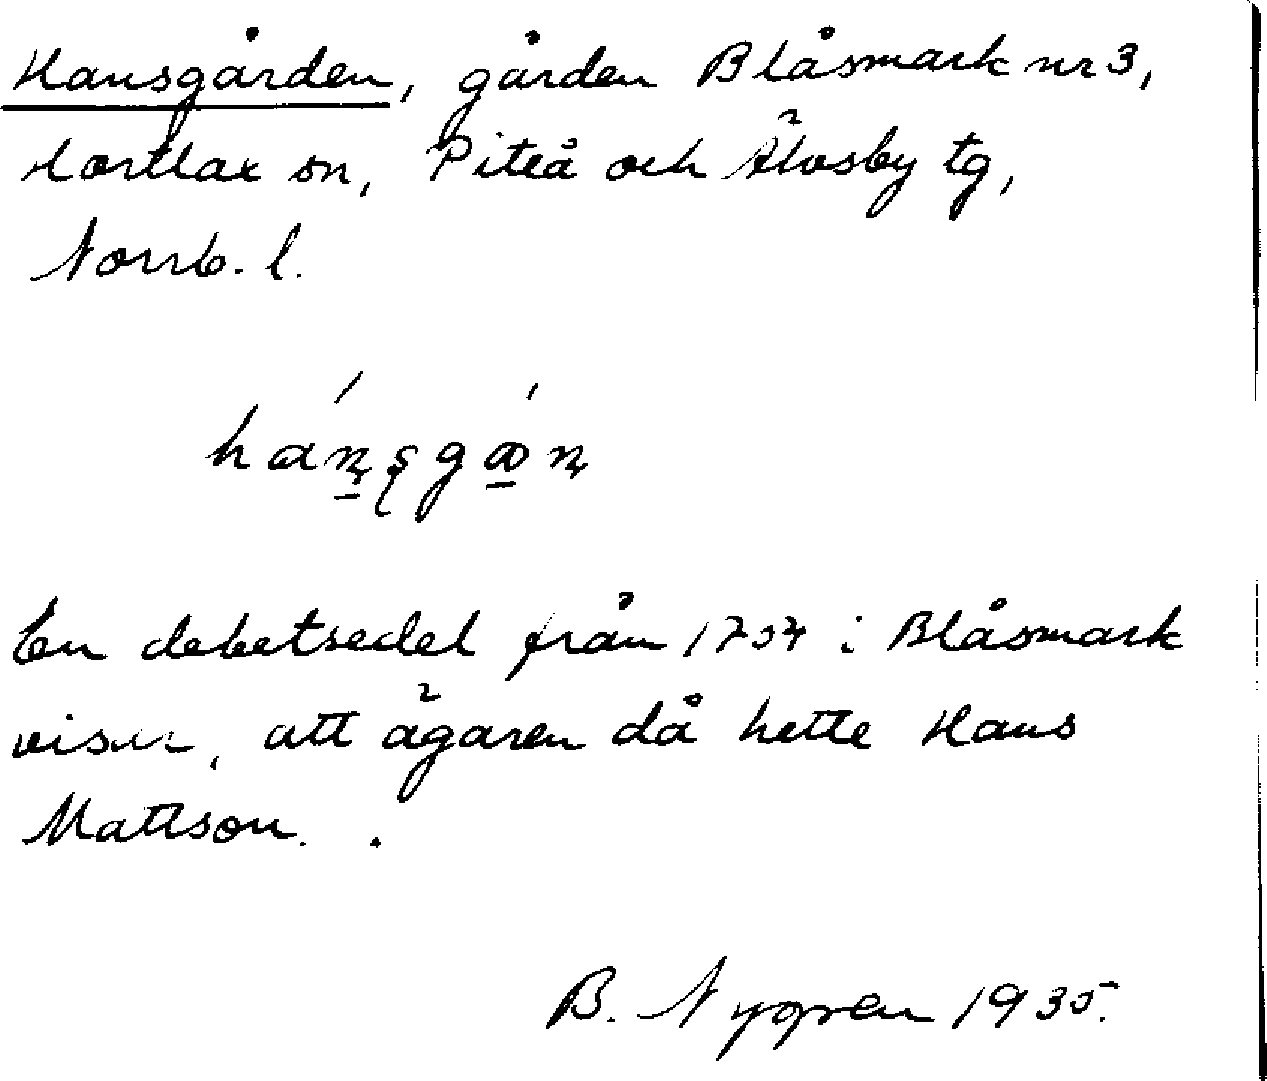 Hansgården, gården Blåsmark nr 3,
Hortlax sn, Piteå och Älvsby tg,
Norrb. l.
En debetsedel från 1757 i Blåsmark
visar, att ägaren då hette Hans
Mattson.
B. Nygren 1935.